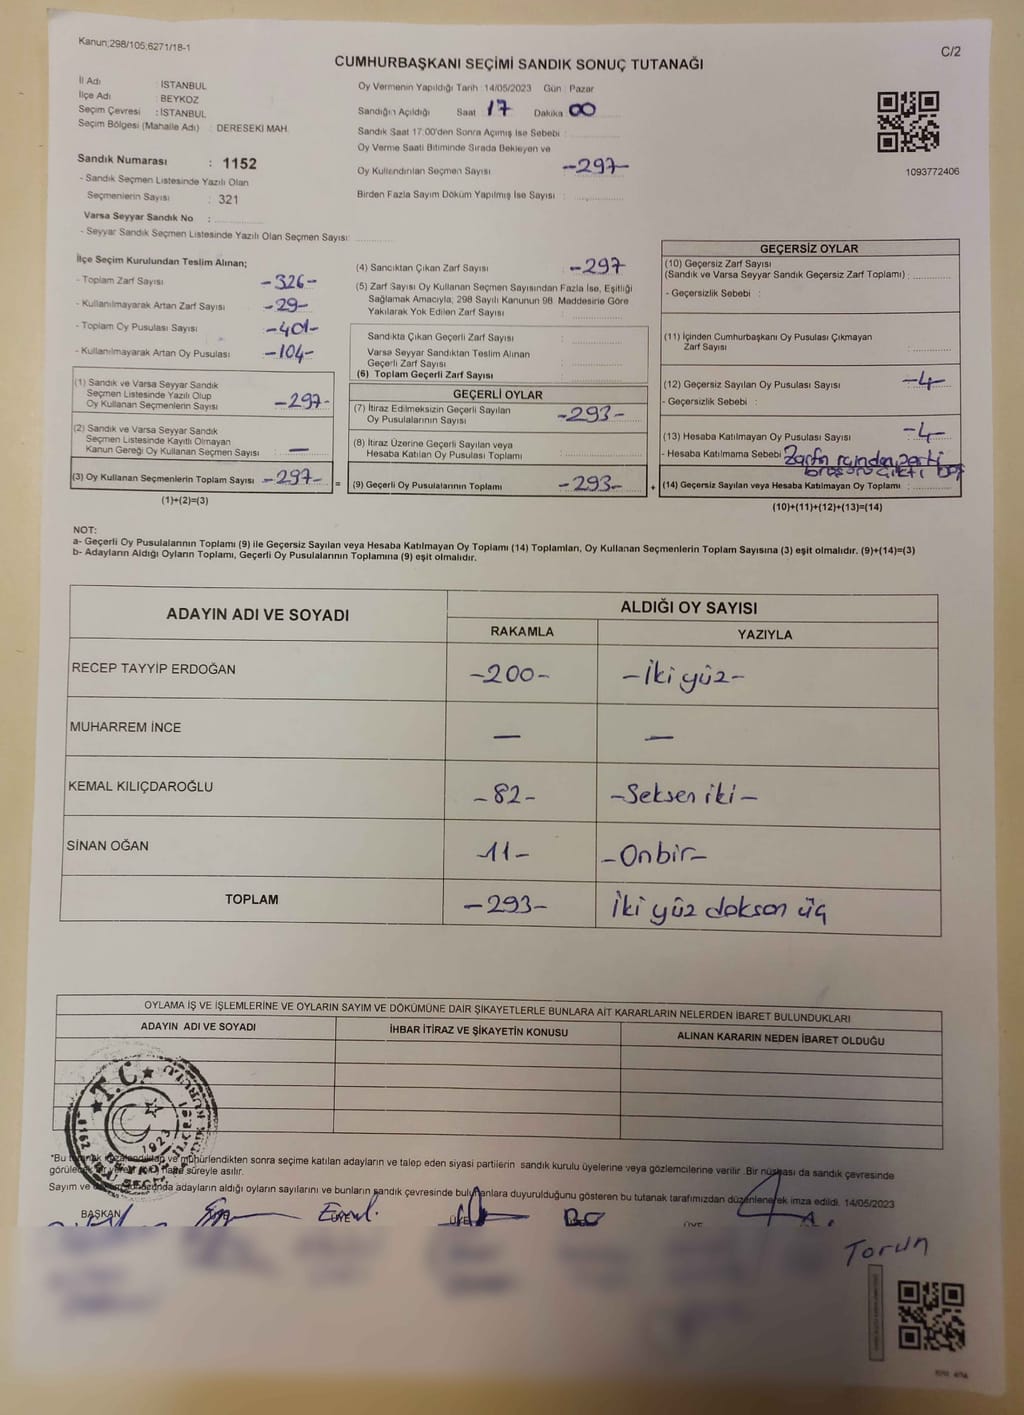 Kanun;298/105;6271/18-1
C/2
CUMHURBAŞKANI SEÇİMİ SANDIK SONUÇ TUTANAĞI
İl Adı : İSTANBUL
İlçe Adı : BEYKOZ
Seçim Çevresi : İSTANBUL
Seçim Bölgesi (Mahalle Adı) : DERESEKİ MAH.
Sandık Numarası : 1152
- Sandık Seçmen Listesinde Yazılı Olan
Seçmenlerin Sayısı : 321
Varsa Seyyar Sandık No :
- Seyyar Sandık Seçmen Listesinde Yazılı Olan Seçmen Sayısı:
Oy Vermenin Yapıldığı Tarih 14/05/2023 Gün : Pazar
Sandığın Açıldığı Saat 17 Dakika 00
Sandık Saat 17.00'den Sonra Açımış İse Sebebi :
Oy Verme Saati Bitiminde Sırada Bekleyen ve
Oy Kullandırılan Seçmen Sayısı -297-
Birden Fazla Sayım Döküm Yapılmış İse Sayısı :
1093772406
İlçe Seçim Kurulundan Teslim Alınan;
- Toplam Zarf Sayısı -326-
- Kullanılmayarak Artan Zarf Sayısı -29-
- Toplam Oy Pusulası Sayısı -401-
- Kullanılmayarak Artan Oy Pusulası -104-
(1) Sandık ve Varsa Seyyar Sandık
Seçmen Listesinde Yazılı Olup
Oy Kullanan Seçmenlerin Sayısı -297-
(2) Sandık ve Varsa Seyyar Sandık
Seçmen Listesinde Kayıtlı Olmayan
Kanun Gereği Oy Kullanan Seçmen Sayısı : —
(3) Oy Kullanan Seçmenlerin Toplam Sayısı -297- =
(1)+(2)=(3)
(4) Sandıktan Çıkan Zarf Sayısı -297
(5) Zarf Sayısı Oy Kullanan Seçmen Sayısından Fazla İse, Eşitliği
Sağlamak Amacıyla, 298 Sayılı Kanunun 98. Maddesine Göre
Yakılarak Yok Edilen Zarf Sayısı :
Sandıkta Çıkan Geçerli Zarf Sayısı :
Varsa Seyyar Sandıktan Teslim Alınan
Geçerli Zarf Sayısı :
(6) Toplam Geçerli Zarf Sayısı :
GEÇERLİ OYLAR
(7) İtiraz Edilmeksizin Geçerli Sayılan
Oy Pusulalarının Sayısı -293-
(8) İtiraz Üzerine Geçerli Sayılan veya
Hesaba Katılan Oy Pusulası Toplamı :
(9) Geçerli Oy Pusulalarının Toplamı -293- +
GEÇERSİZ OYLAR
(10) Geçersiz Zarf Sayısı
(Sandık ve Varsa Seyyar Sandık Geçersiz Zarf Toplamı) :
- Geçersizlik Sebebi :
(11) İçinden Cumhurbaşkanı Oy Pusulası Çıkmayan
Zarf Sayısı :
(12) Geçersiz Sayılan Oy Pusulası Sayısı -4-
- Geçersizlik Sebebi :
(13) Hesaba Katılmayan Oy Pusulası Sayısı -4-
- Hesaba Katılmama Sebebi Zarfın içinden parti
broşürü çıktı
(14) Geçersiz Sayılan veya Hesaba Katılmayan Oy Toplamı :
(10)+(11)+(12)+(13)=(14)
NOT:
a- Geçerli Oy Pusulalarının Toplamı (9) ile Geçersiz Sayılan veya Hesaba Katılmayan Oy Toplamı (14) Toplamları, Oy Kullanan Seçmenlerin Toplam Sayısına (3) eşit olmalıdır. (9)+(14)=(3)
b- Adayların Aldığı Oyların Toplamı, Geçerli Oy Pusulalarının Toplamına (9) eşit olmalıdır.
ADAYIN ADI VE SOYADI
ALDIĞI OY SAYISI
RAKAMLA
YAZIYLA
RECEP TAYYİP ERDOĞAN -200- -İki yüz-
MUHARREM İNCE — —
KEMAL KILIÇDAROĞLU -82- -Seksen iki-
SİNAN OĞAN -11- -Onbir-
TOPLAM -293- İki yüz doksan üç
OYLAMA İŞ VE İŞLEMLERİNE VE OYLARIN SAYIM VE DÖKÜMÜNE DAİR ŞİKAYETLERLE BUNLARA AİT KARARLARIN NELERDEN İBARET BULUNDUKLARI
ADAYIN ADI VE SOYADI
İHBAR İTİRAZ VE ŞİKAYETİN KONUSU
ALINAN KARARIN NEDEN İBARET OLDUĞU
T.C.
1923
*Bu ve mühürlendikten sonra seçime katılan adayların ve talep eden siyasi partilerin sandık kurulu üyelerine veya gözlemcilerine verilir .Bir nüshası da sandık çevresinde
hafta süreyle asılır.
Sayım ve adayların aldığı oyların sayılarını ve bunların sandık çevresinde bulunanlara duyurulduğunu gösteren bu tutanak tarafımızdan düzenlenerek imza edildi. 14/05/2023
BAŞKAN
ÜYE
Torun